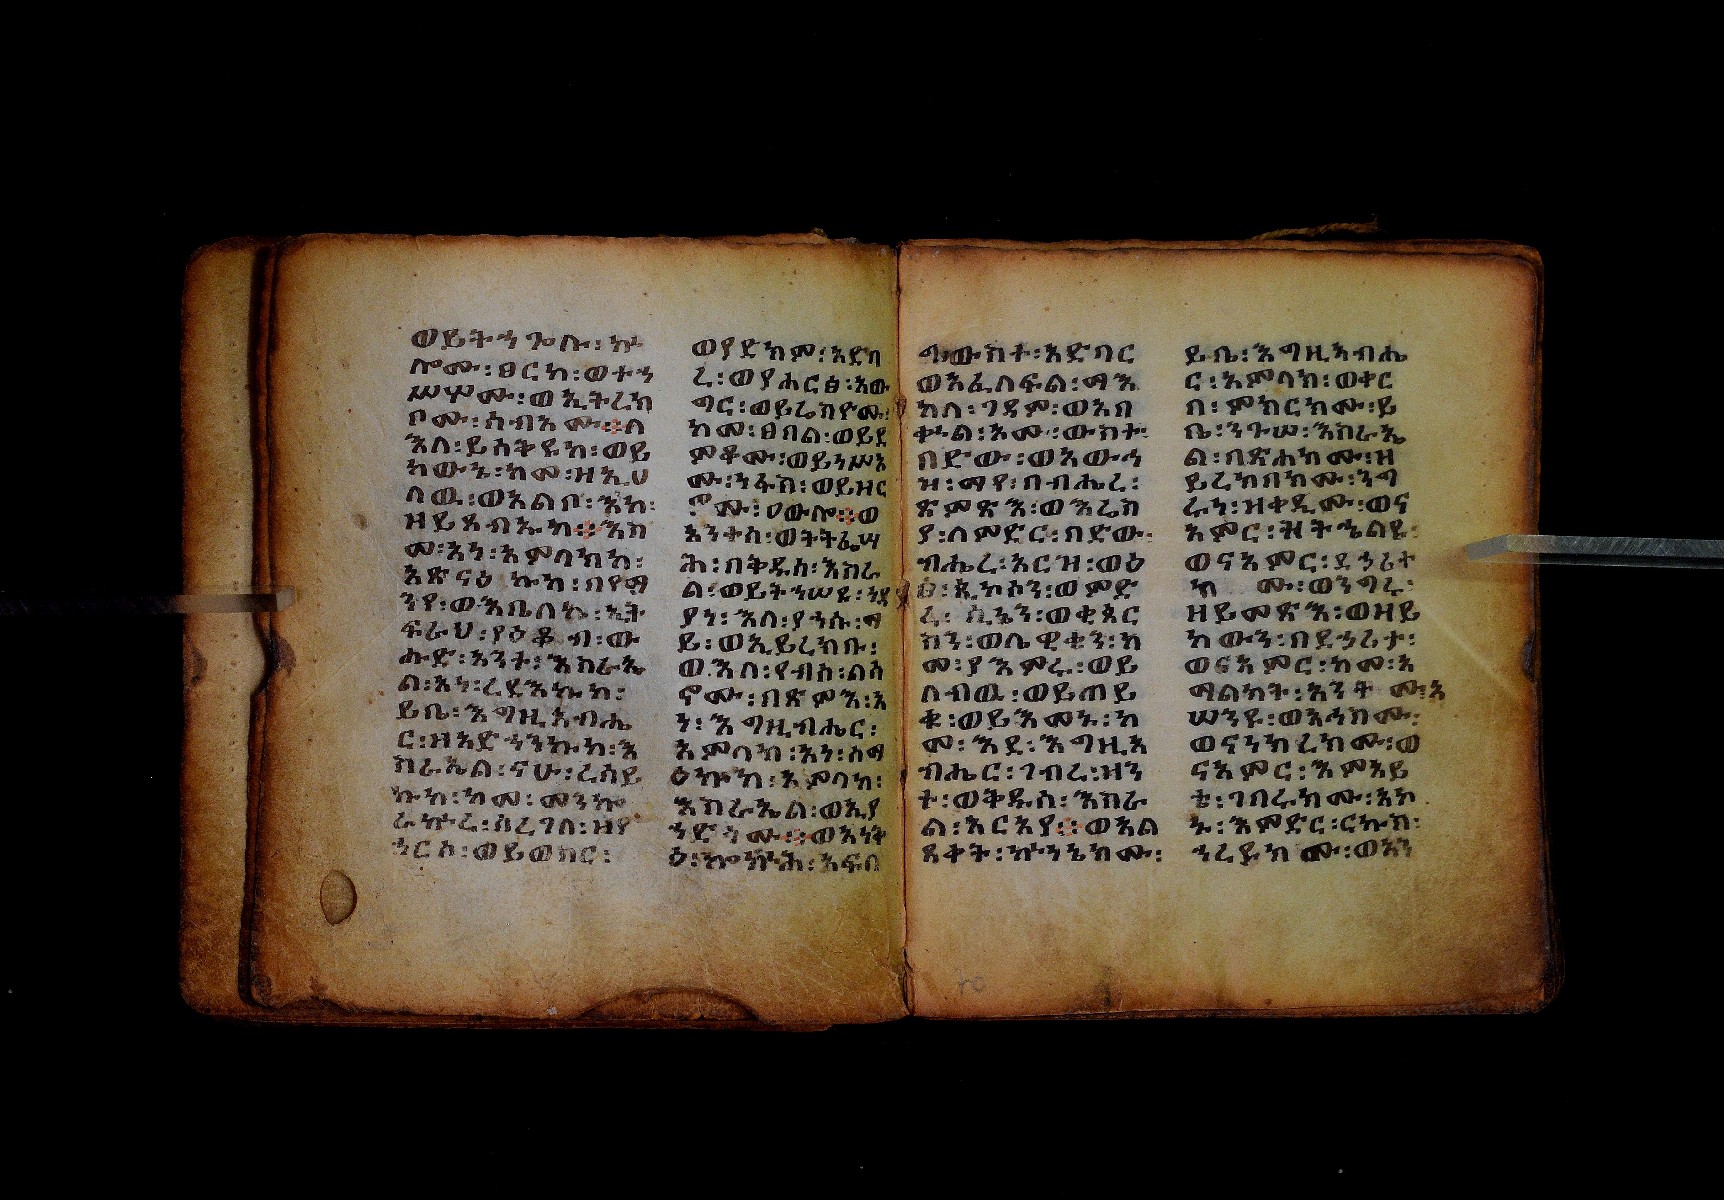 ወይትኀጐሉ፡ኵ
ሎሙ፡ፀርከ፡ወተኀ
ሥሦሙ፡ወኢትረክ
ቦሙ፡ሰብእሙ፨ለ
እለ፡ይስቅዩከ፡ወይ
ከውኑ፡ከመ፡ዘኢሀ
ለዉ፡ወአልቦ፡እከ፡
ዘይጸብኡከ፨እስ
መ፡አነ፡አምላክከ፡
አጽናዕኩከ፡በየማ
ንየ፡ወእቤለከ፡ኢት
ፍራህ፡ያዕቆብ፡ው
ሑድ፡አንተ፡እስራኤ
ል፡አነ፡ረዳእኩከ፡
ይቤ፡እግዚአብሔ
ር፡ዘአድኀንኩከ፡እ
ስራኤል፡ናሁ፡ረሰይ
ኩከ፡ከመ፡መንኰ
ራኵረ፡ሰረገላ፡ዘየ
ኀርስ፡ወይወስር፡
ወያደክም፡አድባ
ረ፡ወያሐርፅ፡አው
ግር፡ወይሬስዮሙ፡
ከመ፡ፀበል፡ወይደ
ምቆሙ፡ወይነሥአ
ሙ፡ነፋስ፡ወይዘር
ዎሙ፡ዐውሎ፨ወ
አንተሰ፡ወትትፌሣ
ሕ፡በቅዱሰ፡እስራ
ል፡ወይትኀሠዩ፡ነዳ
ያን፡እለ፡የኀሱ፡ማ
ይ፡ወኢይረክቡ፡
ወእለ፡የብሰ፡ልሳ
ኖሙ፡በጽምእ፡አ
ነ፡እግዚብሔር፡
አምላክ፡አነ፡ሰማ
ዕኩከ፡አምላከ፡
እስራኤል፡ወኢያ
ንድጎሙ፨ወአነቅ
ዕ፡ኰኵሕ፡አፍላ
ግ፡ውስተ፡አድባር
ወእፌለፍል፡ማእ
ከለ፡ገዳም፡ወእበ
ቍል፡እሙ፡ውስተ፡
በድው፡ወእውኅ
ዝ፡ማየ፡በብሔረ፡
ጽምጽእ፡ወእሬስ
ያ፡ለምድር፡በድው፡
ብሔረ፡አርዝ፡ወዕ
ፅ፡ጺኮስን፡ወምድ
ረ፡ሲኔን፡ወቂጳር
ስን፡ወሴዊቂን፡ከ
መ፡ያእምሩ፡ወይ
ለብዉ፡ወይጠይ
ቁ፡ወይእመኑ፡ከ
መ፡እደ፡እግዚአ
ብሔር፡ገብረ፡ዘን
ተ፡ወቅዱስ፡እስራ
ል፡አርአየ፨ወአል
ጸቀት፡ኵነኔክሙ፡
ይቤ፡እግዚአብሔ
ር፡አምላክ፡ወቀር
በ፡ምክርክሙ፡ይ
ቤ፡ንጉሠ፡እስራኤ
ል፡በጽሐክሙ፡ዘ
ይረክበክሙ፡ንግ
ሩነ፡ዝቀዲሙ፡ወና
አምር፡ዝትኄልዩ፡
ወናአምር፡ደኃሪት
ክሙ፡ወንግሩ፡
ዘይመጽእ፡ወዘይ
ከውን፡በደኃሪታ፡
ወናእምር፡ከመ፡አ
ማልክት፡አንትሙ፡አ
ሠንዩ፡ወአኅስሙ፡
ወናንክረክሙ፡ወ
ናእምር፡እምአይ
ቴ፡ገበሩክሙ፡አኮ
ኑ፡እምድር፡ርኩስ፡
ኀረይክሙ፡ወአን